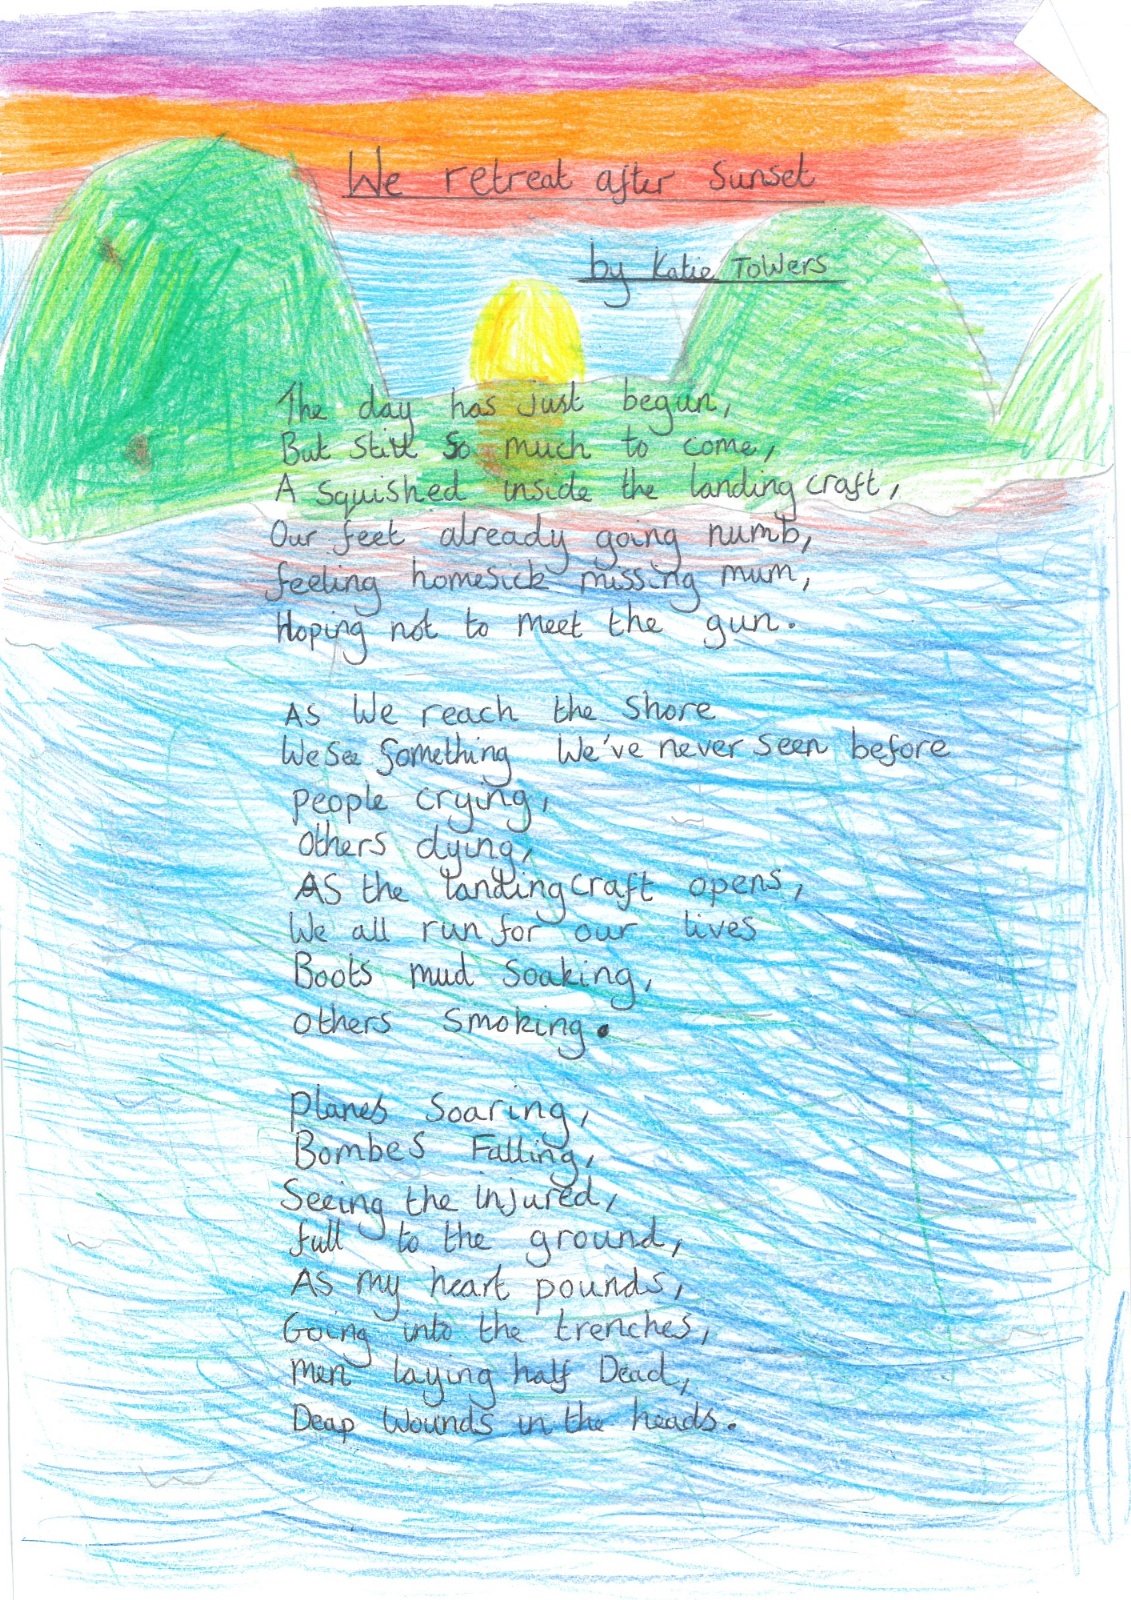 We retreat after Sunset
by Katie Towers
The day has just begun,
But still So much to come,
A squished inside the landing craft,
Our feet already going numb,
feeling homesick missing mum,
Hoping not to meet the gun.
As We reach the Shore
We see Something We've never seen before
people crying,
Others dying,
As the landing craft opens,
We all run for our lives
Boots mud Soaking,
others smoking.
Planes Soaring,
Bombes Falling,
Seeing the injured,
full to the ground,
As my heart pounds,
Going into the trenches,
Men laying half Dead,
Deap Wounds in the heads.